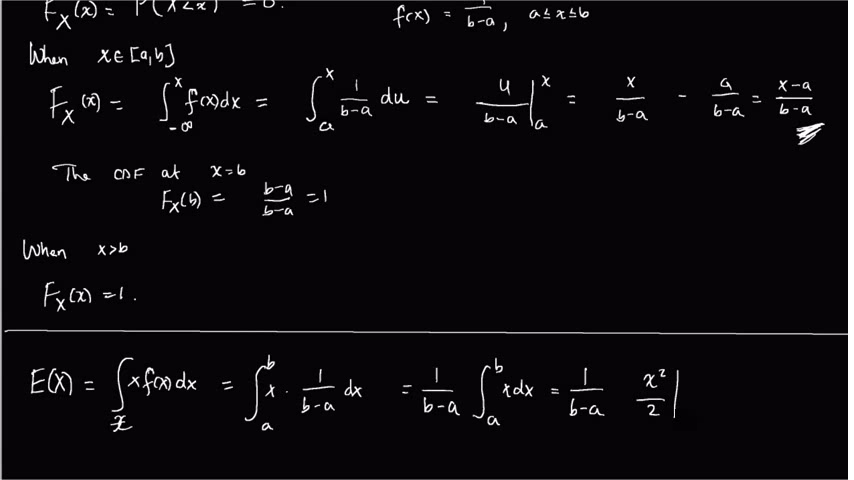 F_X(x) = P(X<x) = 0.
f(x) = 1/(b-a), a ≤ x ≤ b
When x ∈ [a,b]
F_X(x) = ∫_{-∞}^{x} f(x)dx = ∫_{a}^{x} 1/(b-a) du = u/(b-a) |_{a}^{x} = x/(b-a) - a/(b-a) = (x-a)/(b-a)
The CDF at x=b
F_X(b) = (b-a)/(b-a) = 1
When x>b
F_X(x) = 1.
E(X) = ∫_{x} x f(x) dx = ∫_{a}^{b} x · 1/(b-a) dx = 1/(b-a) ∫_{a}^{b} x dx = 1/(b-a) x²/2 |